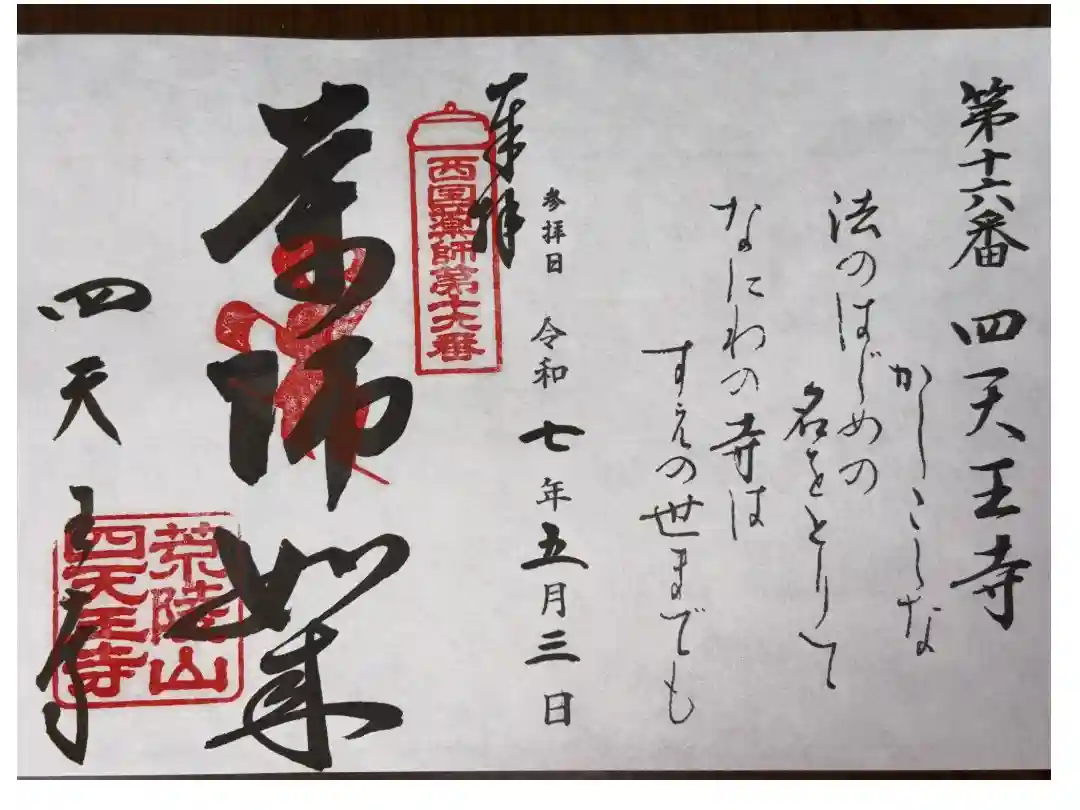 第十六番 四天王寺
かしこしな
法のはじめの
名をとりて
なにわの寺は
すえの世までも
参拝日 令和七年五月三日
奉拝
西国薬師第十六番
薬師如来
荒陵山
四天王寺
四天王寺